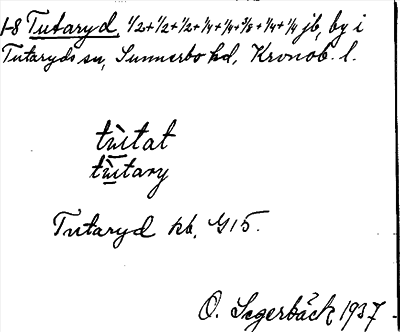 1-8 Tutaryd, 1/2+1/2+1/2+1/4+1/4+3/8+1/4+1/4 jb, by i
Tutaryds sn, Sunnerbo hd, Kronob. l.
tùtat
tùtary
Tutaryd kb, G15.
O. Segerbäck 1937.